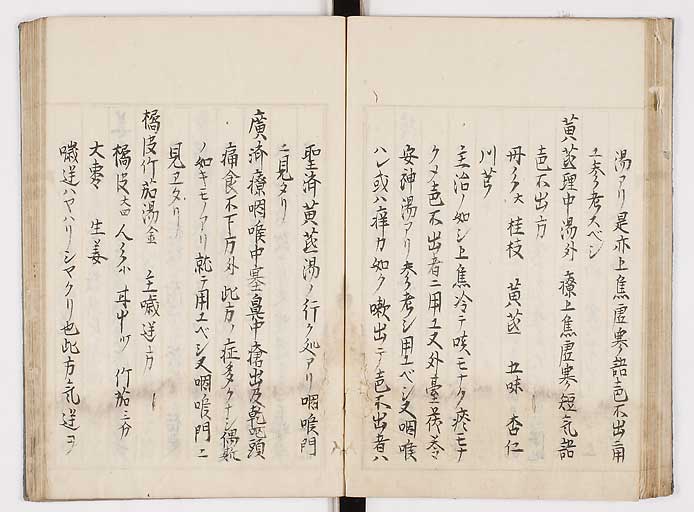 湯アリ是亦上焦虚寒語声不出ニ用
ユ参考スベシ
黄芪理中湯外 療上焦虚寒短気語
声不出方
丹参大 桂枝 黄芪 五味 杏仁
川芎
主治ノ如シ上焦冷テ咳モナク痰モナ
ク声不出者ニ用ユ又外臺茯苓
安神湯アリ参考シ用ユベシ又咽喉
ハレ或ハ痒カ如ク嗽出テ声不出者ハ
聖済黄芪湯ノ行ク処アリ咽喉門
ニ見タリ
廣済療咽喉中塞鼻中瘡出及乾頭
痛食不下方外 此方ノ症多クナシ偶
ノ如キモノアリ就テ用ユベシ又咽喉門ニ
見エタリ
橘皮竹茹湯金 主噦逆方
橘皮大四 人参小 甘中 竹茹三分
大棗 生姜
噦逆ハヤハリシヤクリ也此方気逆ヲ